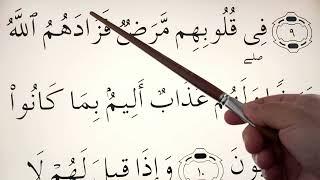 ٩ فِى قُلُوبِهِم مَّرَضٌ فَزَادَهُمُ ٱللَّهُ
وَلَهُمْ عَذَابٌ أَلِيمٌۢ بِمَا كَانُوا۟
١٠ وَإِذَا قِيلَ لَهُمْ لَا